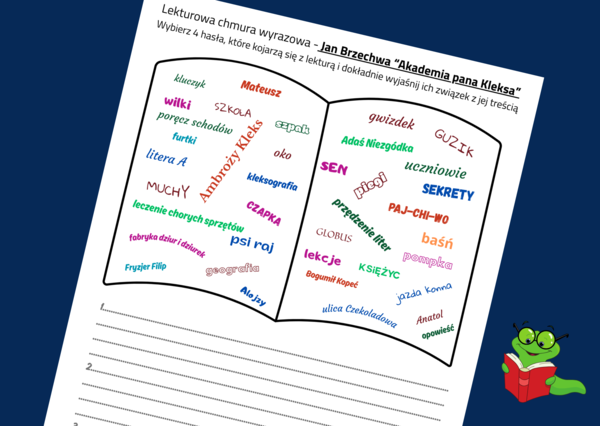 Lekturowa chmura wyrazowa - Jan Brzechwa "Akademia pana Kleksa"
Wybierz 4 hasła, które kojarzą się z lekturą i dokładnie wyjaśnij ich związek z jej treścią
kluczyk
Mateusz
wilki
SZKOŁA
poręcz schodów
szpak
furtki
Ambroży Kleks
oko
litera A
kleksografia
MUCHY
CZAPKA
leczenie chorych sprzętów
fabryka dziur i dziurek
psi raj
Fryzjer Filip
geografia
Alojzy
gwizdek
GUZIK
Adaś Niezgódka
uczniowie
SEN
piegi
SEKRETY
PAJ-CHI-WO
przędzenie liter
GLOBUS
baśń
pompka
lekcje
KSIĘŻYC
Bogumił Kopeć
jazda konna
ulica Czekoladowa
Anatol
opowieść
1.
2.